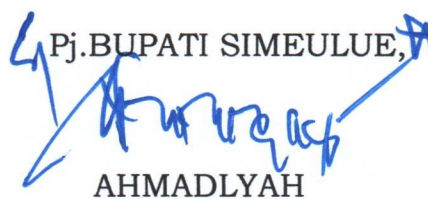 Pj.BUPATI SIMEULUE,
AHMADLYAH